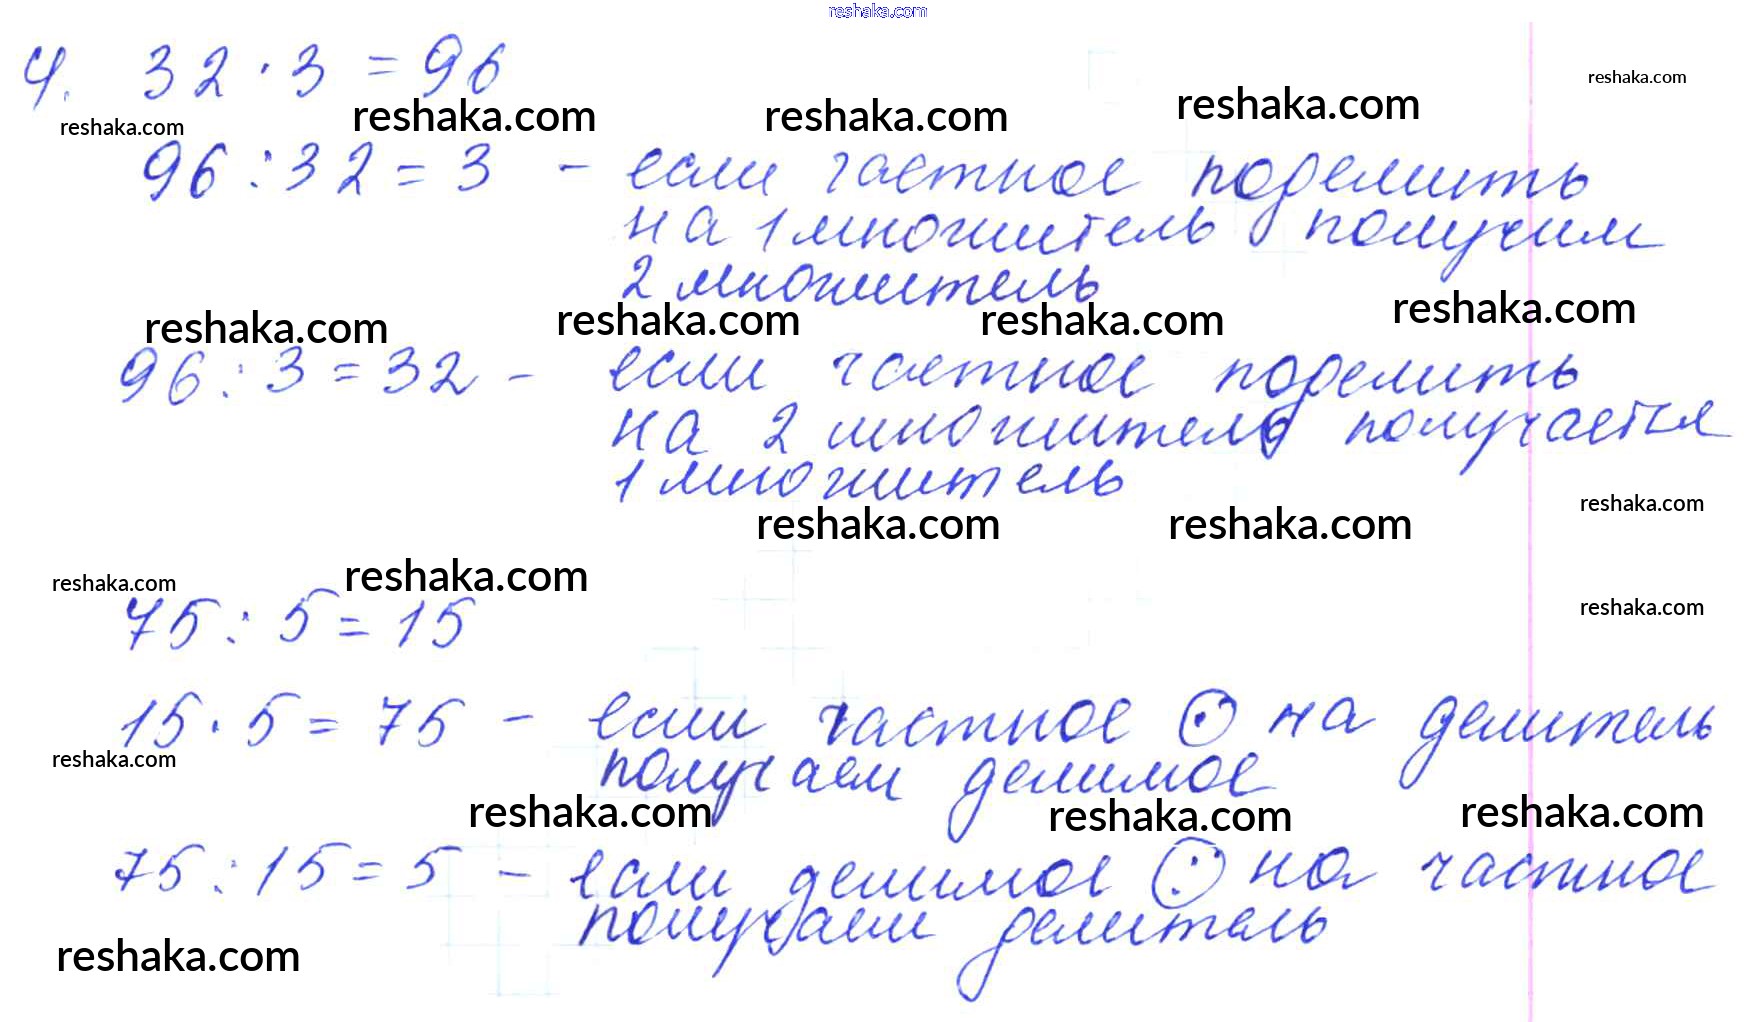 reshaka.com
4. 32 · 3 = 96
reshaka.com
reshaka.com reshaka.com reshaka.com reshaka.com
96 : 32 = 3 - если частное поделить
на 1 множитель получим
2 множитель
reshaka.com reshaka.com reshaka.com reshaka.com
96 : 3 = 32 - если частное поделить
на 2 множитель получается
1 множитель
reshaka.com
reshaka.com reshaka.com
reshaka.com reshaka.com
reshaka.com
75 : 5 = 15
15 · 5 = 75 - если частное · на делитель
получаем делимое
reshaka.com
reshaka.com reshaka.com reshaka.com
75 : 15 = 5 - если делимое : на частное
получаем делитель
reshaka.com